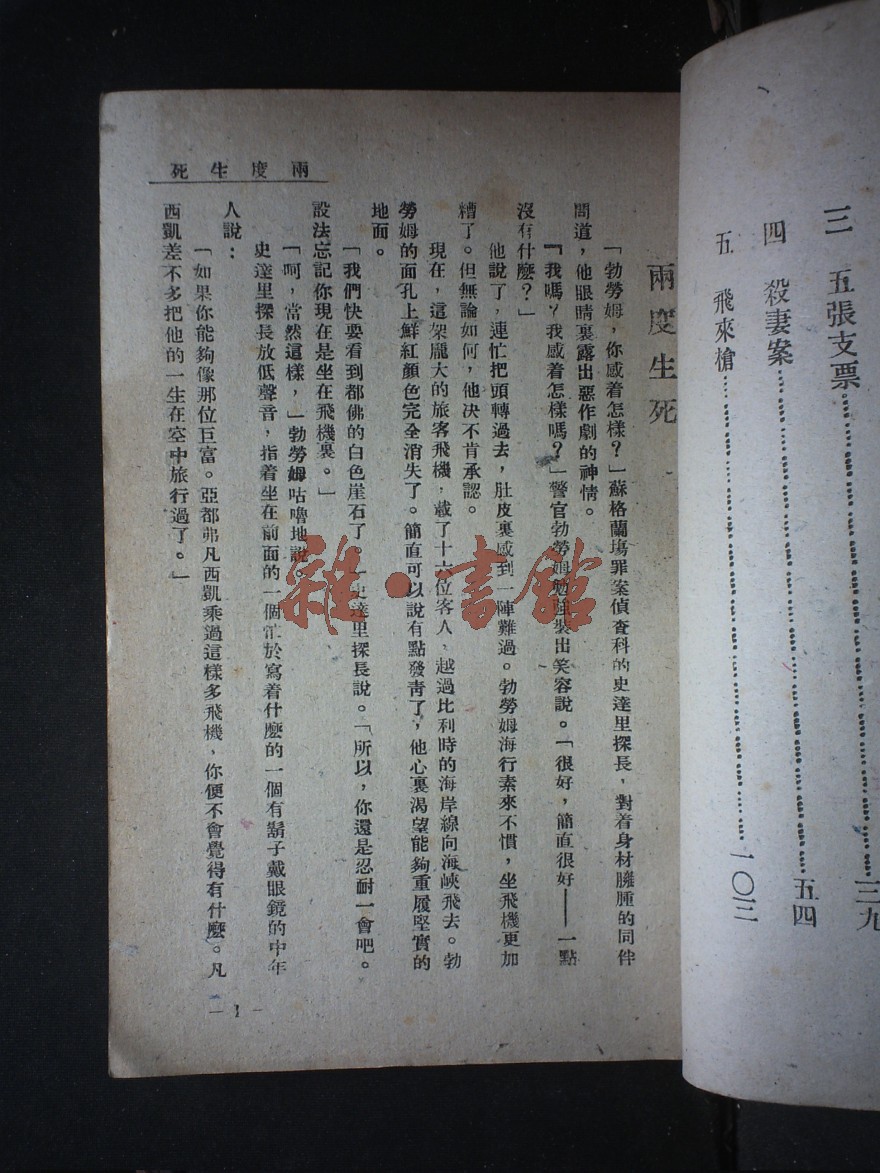 三　五張支票……三九
四　殺妻案……五四
五　飛來槍……一〇三
兩度生死
兩度生死
「勃勞姆，你感着怎樣？」蘇格蘭場罪案偵查科的史達里探長，對着身材臃腫的同伴
問道，他眼睛裏露出惡作劇的神情。
「我嗎？我感着怎樣嗎？」警官勃勞姆勉強裝出笑容說。「很好，簡直很好——一點
沒有什麼？」
他說了，連忙把頭轉過去，肚皮裏感到一陣難過。勃勞姆海行素來不慣，坐飛機更加
糟了。但無論如何，他決不肯承認。
現在，這架龐大的旅客飛機，載了十六位客人，越過比利時的海岸線向海峽飛去。勃
勞姆的面孔上鮮紅顏色完全消失了。簡直可以說有點發青了，他心裏渴望能夠重履堅實的
地面。
「我們快要看到都佛的白色崖石了。」史達里探長說。「所以，你還是忍耐一會吧。
設法忘記你現在是坐在飛機裏。」
「呵，當然這樣，」勃勞姆咕嚕地說。
史達里探長放低聲音，指着坐在前面的一個忙於寫着什麼的一個有鬍子戴眼鏡的中年
人說：
「如果你能夠像那位巨富。亞都弗凡西凱乘過這樣多飛機，你便不會覺得有什麼。凡
西凱差不多把他的一生在空中旅行過了。」
— 1 —
雜·書館